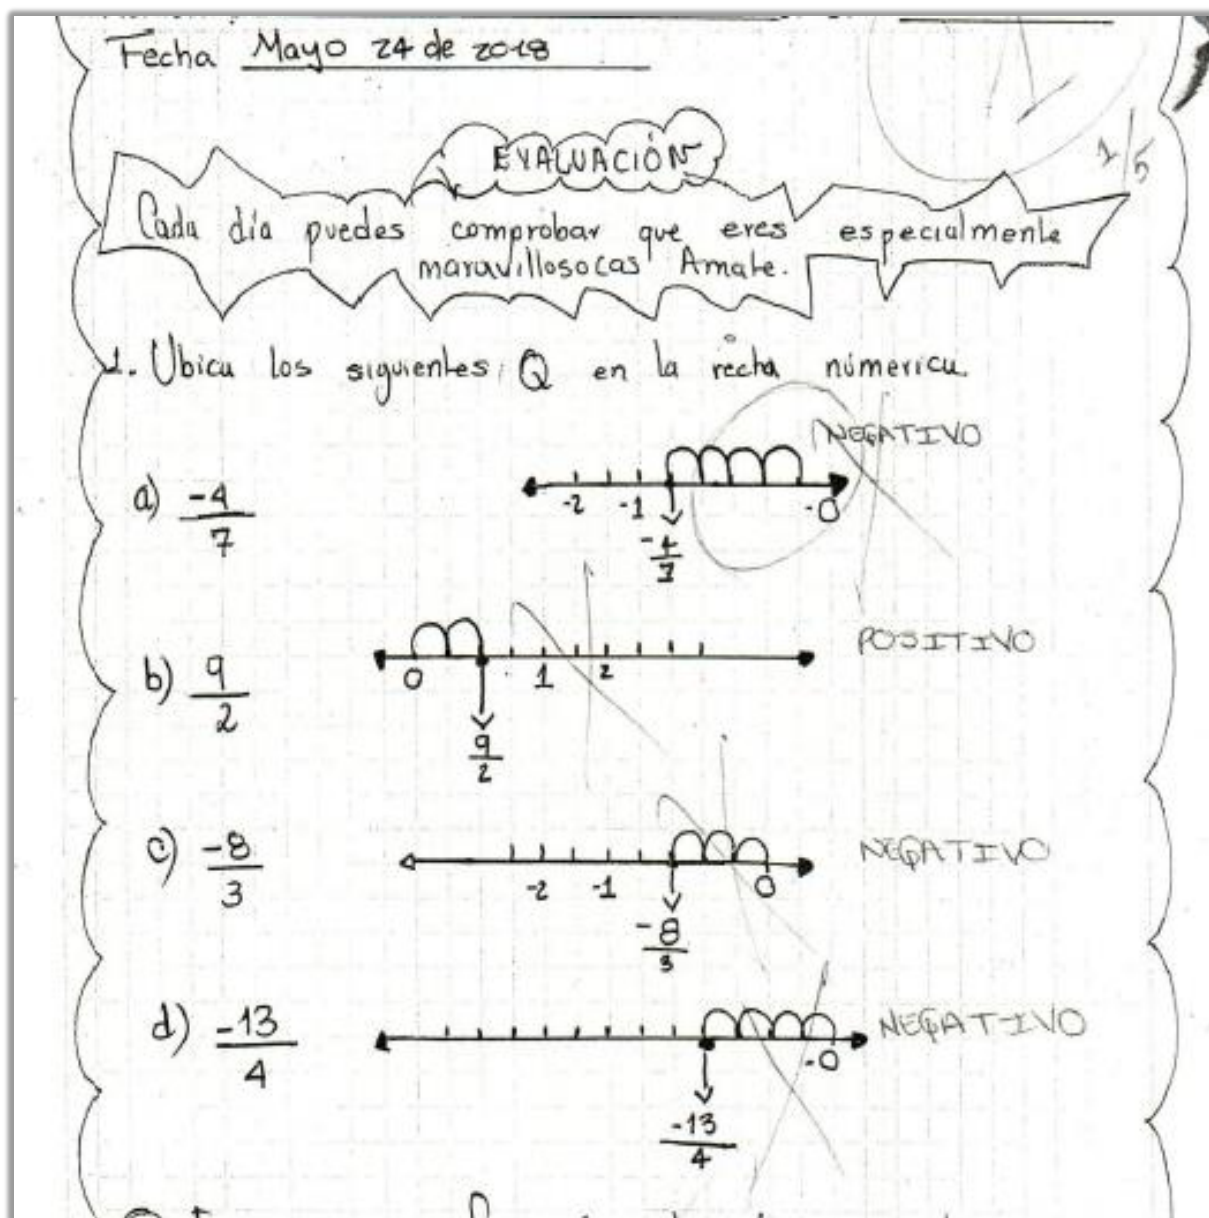 Fecha Mayo 24 de 2018
1/5
EVALUACIÓN
Cada día puedes comprobar que eres especialmente
maravillosocas Amate.
1. Ubica los siguientes Q en la recta númerica.
NEGATIVO
a) -4/7
-2 -1 -0
-4/7
POSITIVO
b) 9/2
0 1 2
9/2
NEGATIVO
c) -8/3
-2 -1 0
-8/3
NEGATIVO
d) -13/4
-0
-13/4